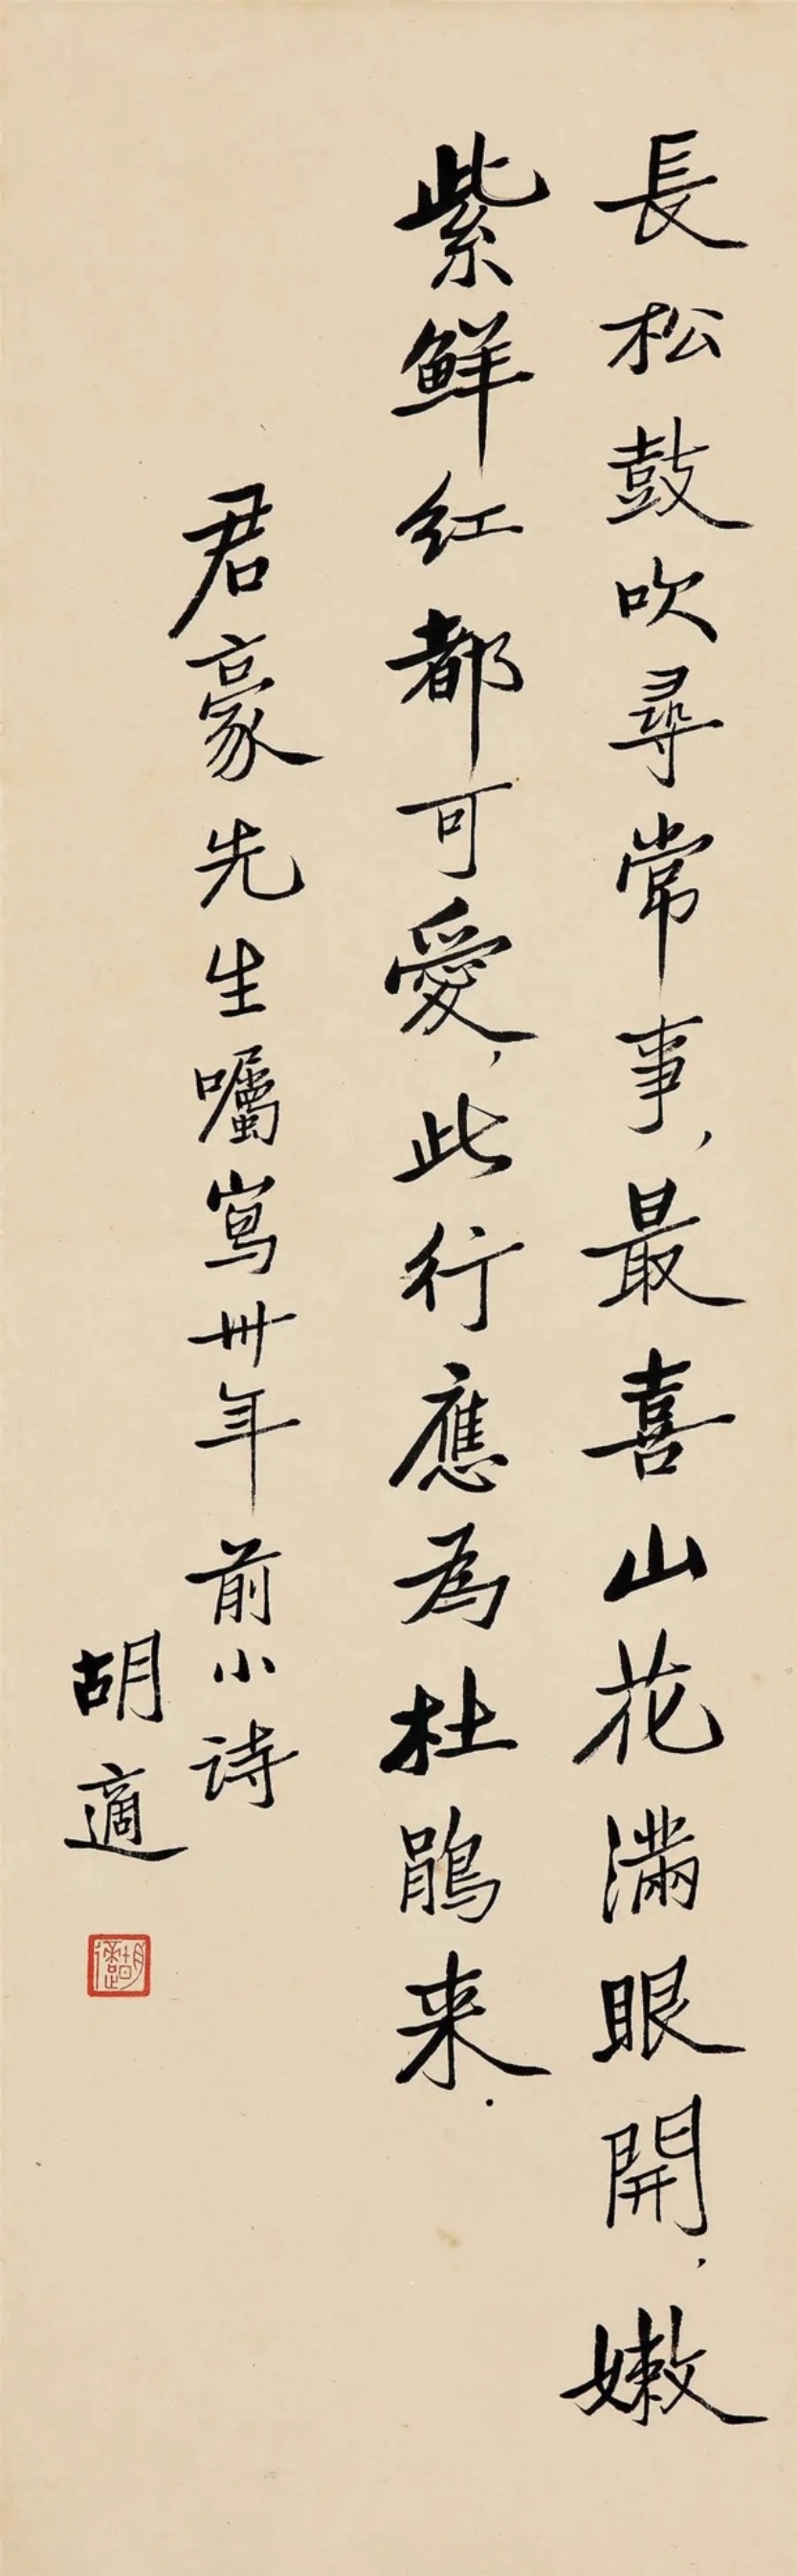 長松鼓吹尋常事，最喜山花滿眼開，嫩
紫鮮红都可愛，此行應為杜鵑来．
君豪先生囑寫卅年前小诗
胡適
胡適